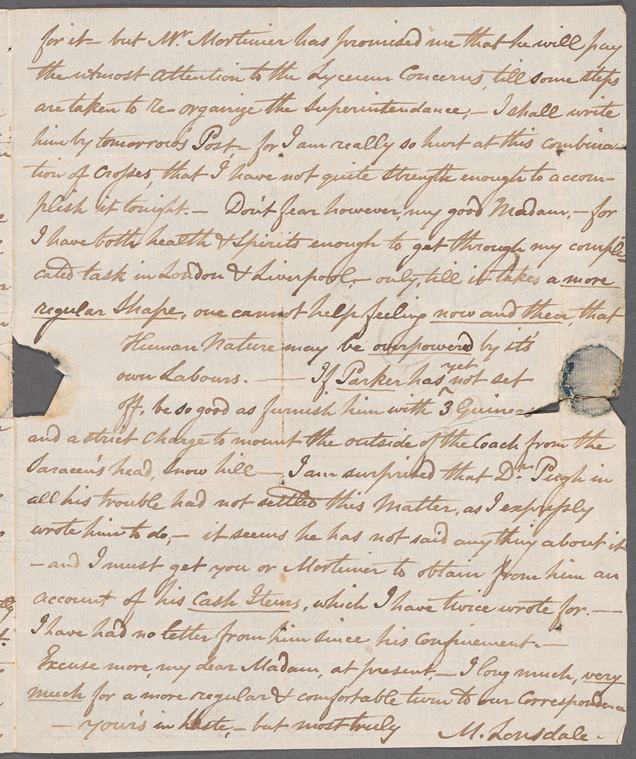 for it – but Mr. Mortimer has promised me that he will pay
the utmost Attention to the Lyceum Concerns, till some steps
are taken to re-organize the Superintendance; – I shall write
him by tomorrow's Post – for I am really so hurt at this combina-
tion of Crosses, that I have not quite strength enough to accom-
plish it tonight. – Don't fear however, my good Madam, – for
I have both health & Spirits enough to get through my compli-
cated task in London & Liverpool, – only, till it takes a more
regular Shape, one cannot help feeling now and then, that
Human Nature may be overpowered by it's
own Labours. — If Parker has yet not set
off, be so good as furnish him with 3 Guineas
and a strict Charge to mount the outside of the Coach from the
Saracen's head, Snow hill – I am surprised that Dr. Pugh in
all his trouble had not settled this Matter, as I expressly
wrote him to do, – it seems he has not said any thing about it
– and I must get you or Mortimer to obtain from him an
account of his Cash Items, which I have twice wrote for. —
I have had no letter from him since his confinement. –
Excuse more, my dear Madam, at present, – I long much, very
much for a more regular & comfortable turn to our Correspondence
– yours in haste, – but most truly M. Lonsdale.